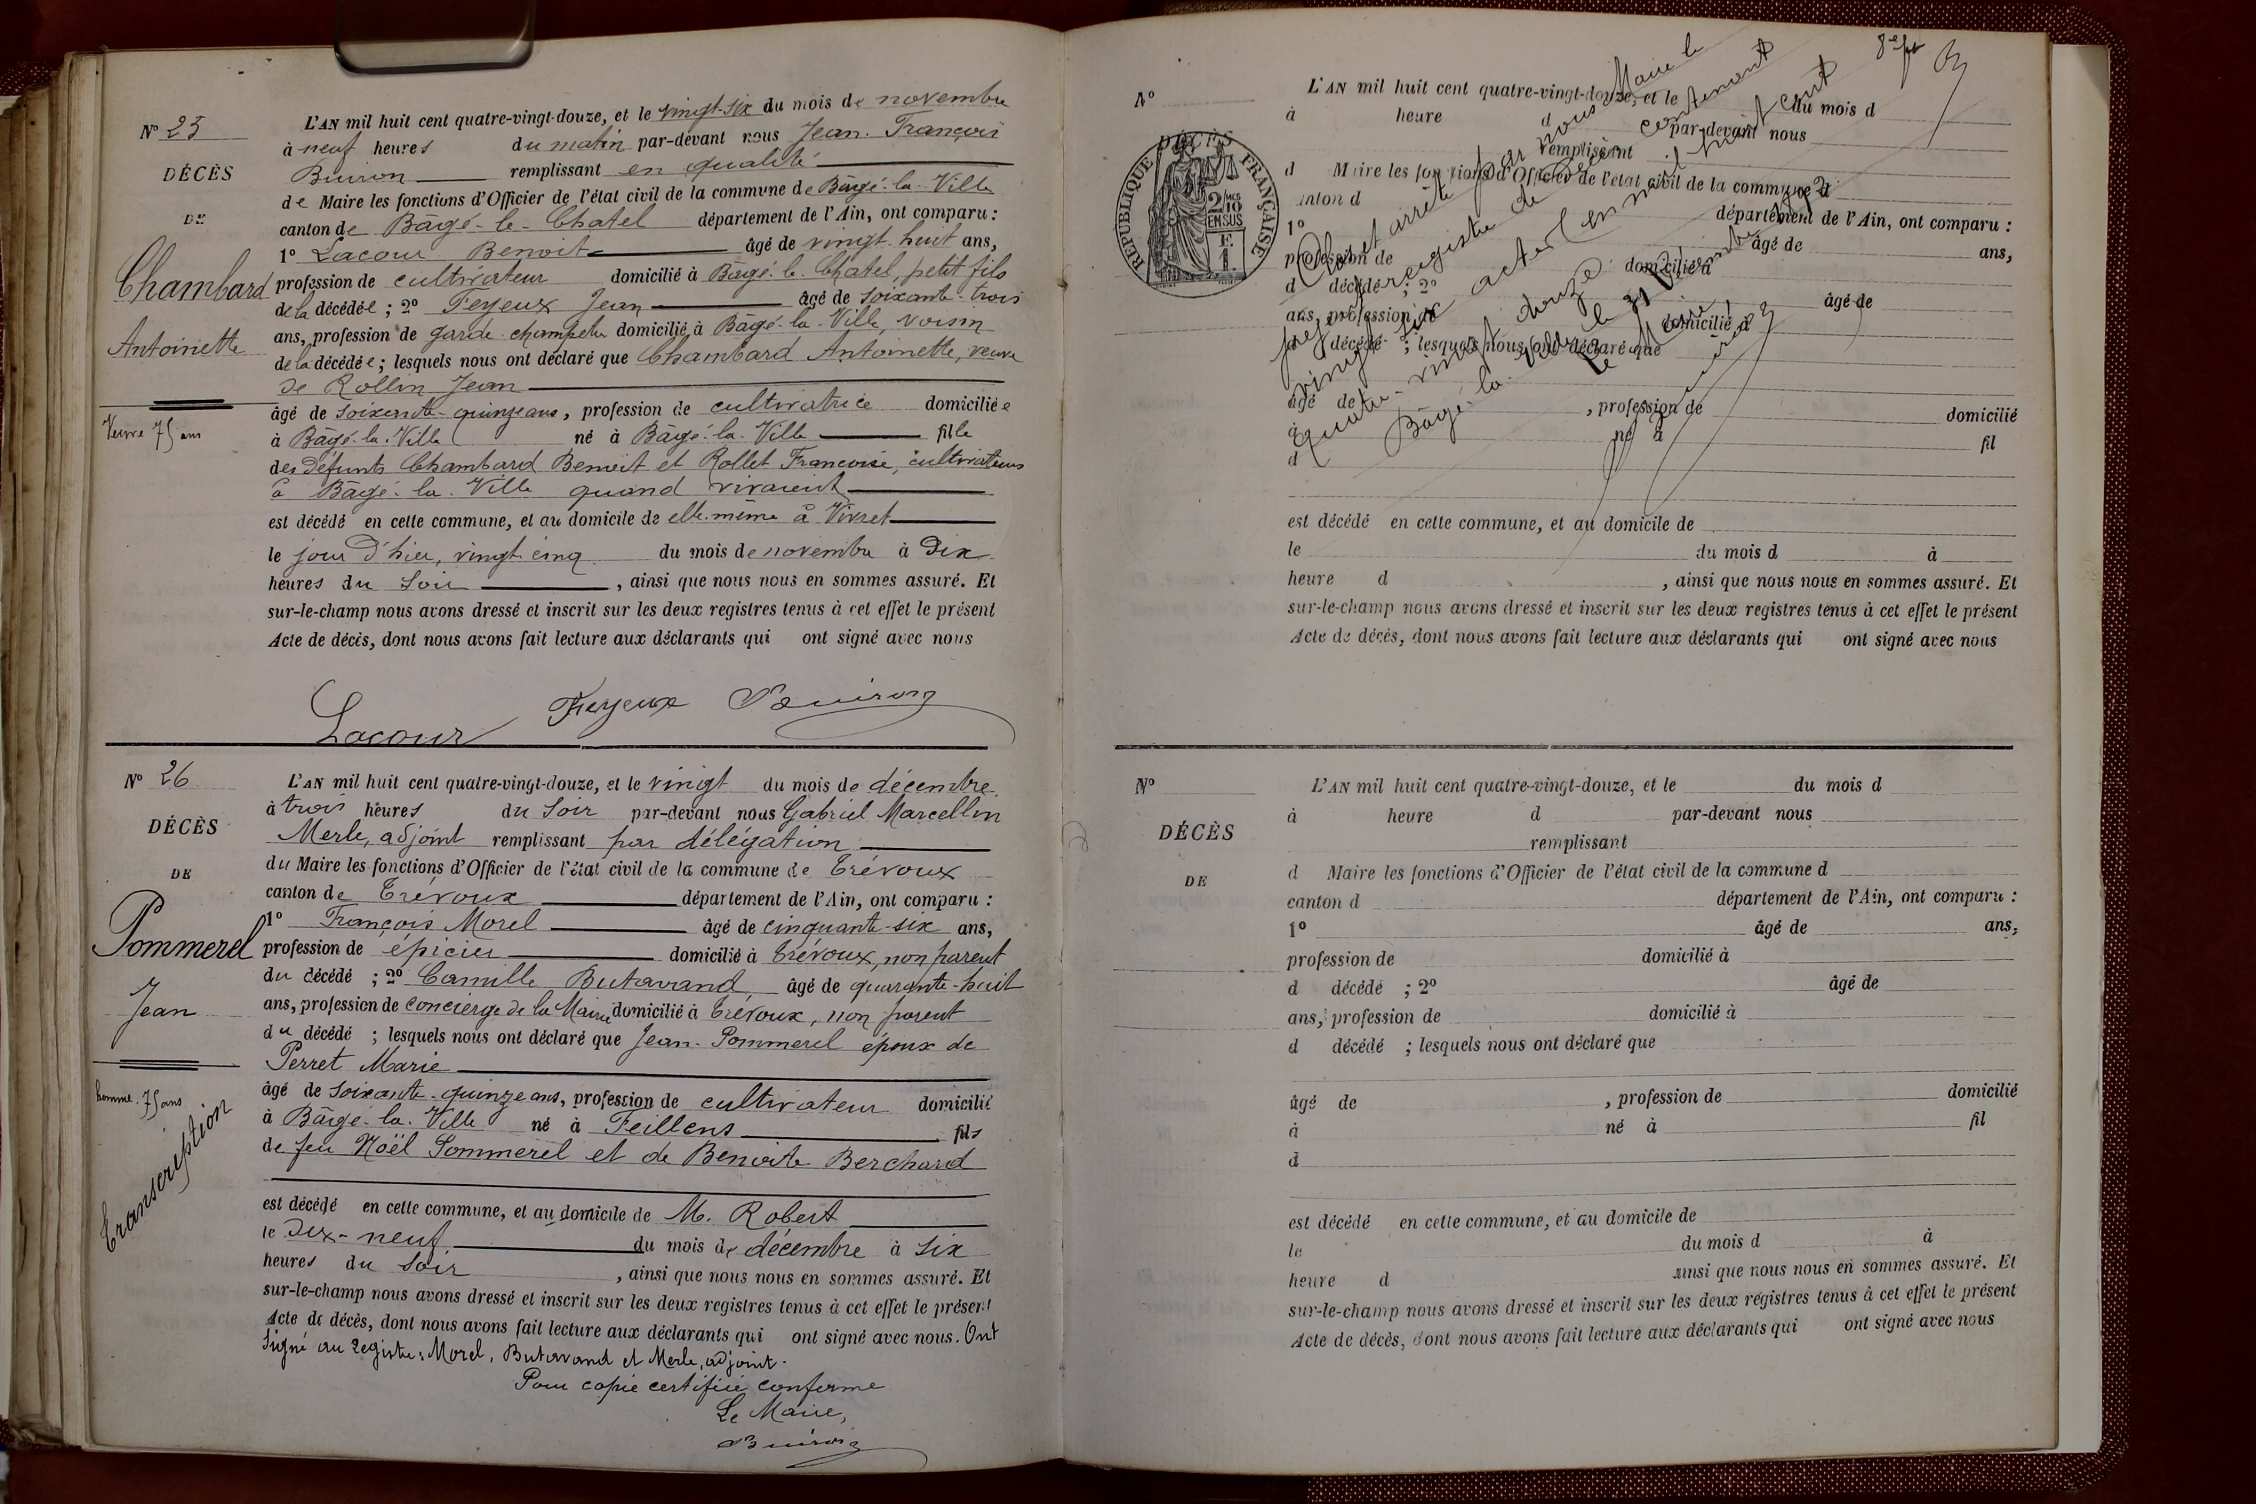 N° 25
DÉCÈS
DE
Chambard
Antoinette
Veuve 75 ans
L'AN mil huit cent quatre-vingt-douze, et le vingt-six du mois de novembre
à neuf heures du matin par-devant nous Jean-François
Buiron remplissant en qualité
de Maire les fonctions d'Officier de l'état civil de la commune de Bâgé-la-Ville
canton de Bâgé-le-Chatel département de l'Ain, ont comparu :
1° Lacour Benoit âgé de vingt-huit ans,
profession de cultivateur domicilié à Bâgé-le-Chatel, petit fils
de la décédée ; 2° Feyeux Jean âgé de soixante-trois
ans, profession de garde-champetre domicilié à Bâgé-la-Ville, voisin
de la décédée ; lesquels nous ont déclaré que Chambard Antoinette, veuve
de Rollin Jean
âgé de soixante-quinze ans, profession de cultivatrice domiciliée
à Bâgé-la-Ville né à Bâgé-la-Ville fille
des défunts Chambard Benoit et Rollet Francoise, cultivateurs
à Bâgé-la-Ville quand vivaient
est décédé en cette commune, et au domicile de elle-même à Vivset
le jour d'hier, vingt cinq du mois de novembre à Dix
heures du soir , ainsi que nous nous en sommes assuré. Et
sur-le-champ nous avons dressé et inscrit sur les deux registres tenus à cet effet le présent
Acte de décès, dont nous avons fait lecture aux déclarants qui ont signé avec nous
Lacour Feyeux Buiron
N° 26
DÉCÈS
DE
Pommerel
Jean
homme 75 ans
Transcription
L'AN mil huit cent quatre-vingt-douze, et le vingt du mois de décembre
à trois heures du soir par-devant nous Gabriel Marcellin
Merle, adjoint remplissant par délégation
du Maire les fonctions d'Officier de l'état civil de la commune de Trévoux
canton de Trévoux département de l'Ain, ont comparu :
1° François Morel âgé de cinquante-six ans,
profession de épicier domicilié à Trévoux, non parent
du décédé ; 2° Camille Butavand, âgé de quarante-huit
ans, profession de concierge de la Mairie domicilié à Trévoux, non parent
du décédé ; lesquels nous ont déclaré que Jean Pommerel époux de
Perret Marie
âgé de soixante-quinze ans, profession de cultivateur domicilié
à Bâgé-la-Ville né à Feillens fils
de feu Noël Pommerel et de Benoite Berchard
est décédé en cette commune, et au domicile de M. Robert
le Dix-neuf du mois de décembre à six
heures du soir , ainsi que nous nous en sommes assuré. Et
sur-le-champ nous avons dressé et inscrit sur les deux registres tenus à cet effet le présent
Acte de décès, dont nous avons fait lecture aux déclarants qui ont signé avec nous. Ont
signé au registre : Morel, Butavand et Merle, adjoint.
Pour copie certifiée conforme
Le Maire,
Buiron
N°
DÉCÈS
RÉPUBLIQUE FRANÇAISE
2/10
EN SUS
L'AN mil huit cent quatre-vingt-douze, et le du mois d
à heure d par-devant nous
remplissant
d Maire les fonctions d'Officier de l'état civil de la commune d
canton d département de l'Ain, ont comparu :
1° âgé de ans,
profession de domicilié à
d décédé ; 2° âgé de
ans, profession de domicilié à
d décédé ; lesquels nous ont déclaré que
âgé de , profession de domicilié
à né à fil
d
est décédé en cette commune, et au domicile de
le du mois d à
heure d , ainsi que nous nous en sommes assuré. Et
sur-le-champ nous avons dressé et inscrit sur les deux registres tenus à cet effet le présent
Acte de décès, dont nous avons fait lecture aux déclarants qui ont signé avec nous
Clos et arrêté par nous Maire le
présent registre de décès contenant
vingt-six actes (en mil huit cent
quatre-vingt douze
Bâgé-la-Ville le 31 Décembre 1892
Le Maire,
Buiron
N°
DÉCÈS
DE
L'AN mil huit cent quatre-vingt-douze, et le du mois d
à heure d par-devant nous
remplissant
d Maire les fonctions d'Officier de l'état civil de la commune d
canton d département de l'Ain, ont comparu :
1° âgé de ans,
profession de domicilié à
d décédé ; 2° âgé de
ans, profession de domicilié à
d décédé ; lesquels nous ont déclaré que
âgé de , profession de domicilié
à né à fil
d
est décédé en cette commune, et au domicile de
le du mois d à
heure d ainsi que nous nous en sommes assuré. Et
sur-le-champ nous avons dressé et inscrit sur les deux registres tenus à cet effet le présent
Acte de décès, dont nous avons fait lecture aux déclarants qui ont signé avec nous